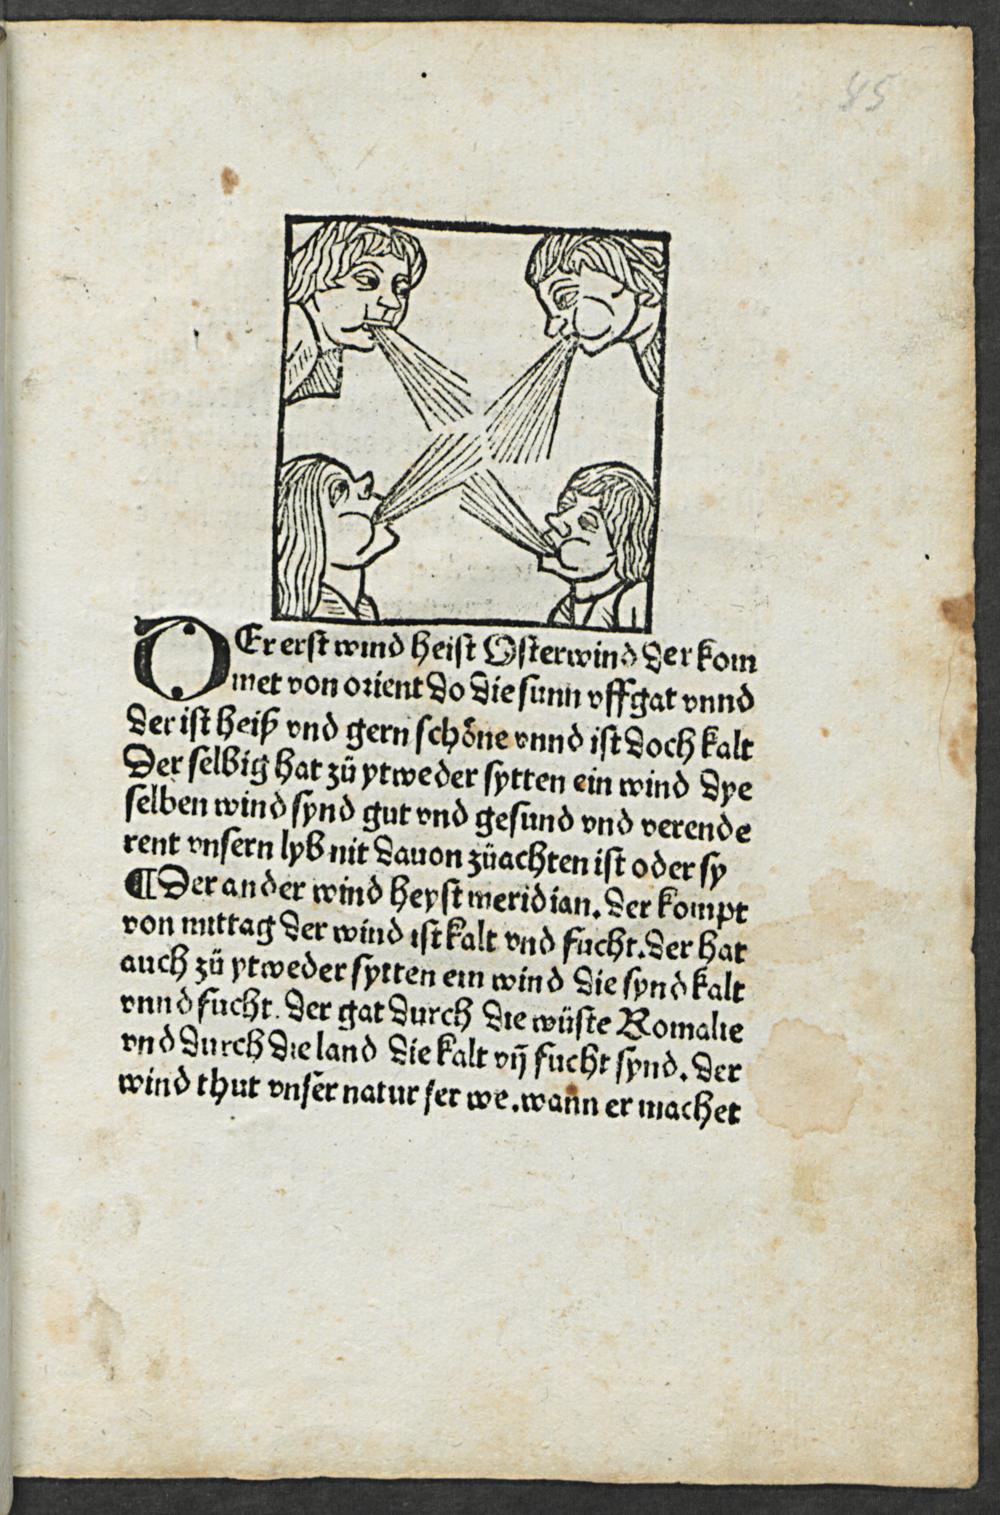 45
DEr erst wind heist Osterwind der kom
met von orient do die sunn vffgat vnnd
der ist heiß vnd gern schöne vnnd ist doch kalt
Der selbig hat zü ytweder sytten ein wind dye
selben wind synd gut vnd gesund vnd verende
rent vnsern lyb nit dauon züachten ist oder sy
¶ Der ander wind heyst meridian. der kompt
von mittag der wind ist kalt vnd fücht. der hat
auch zü ytweder sytten ein wind die synd kalt
vnnd fücht. der gat durch die wüste Romalie
vnd durch die land die kalt vñ fücht synd. der
wind thut vnser natur ser we. wann er machet